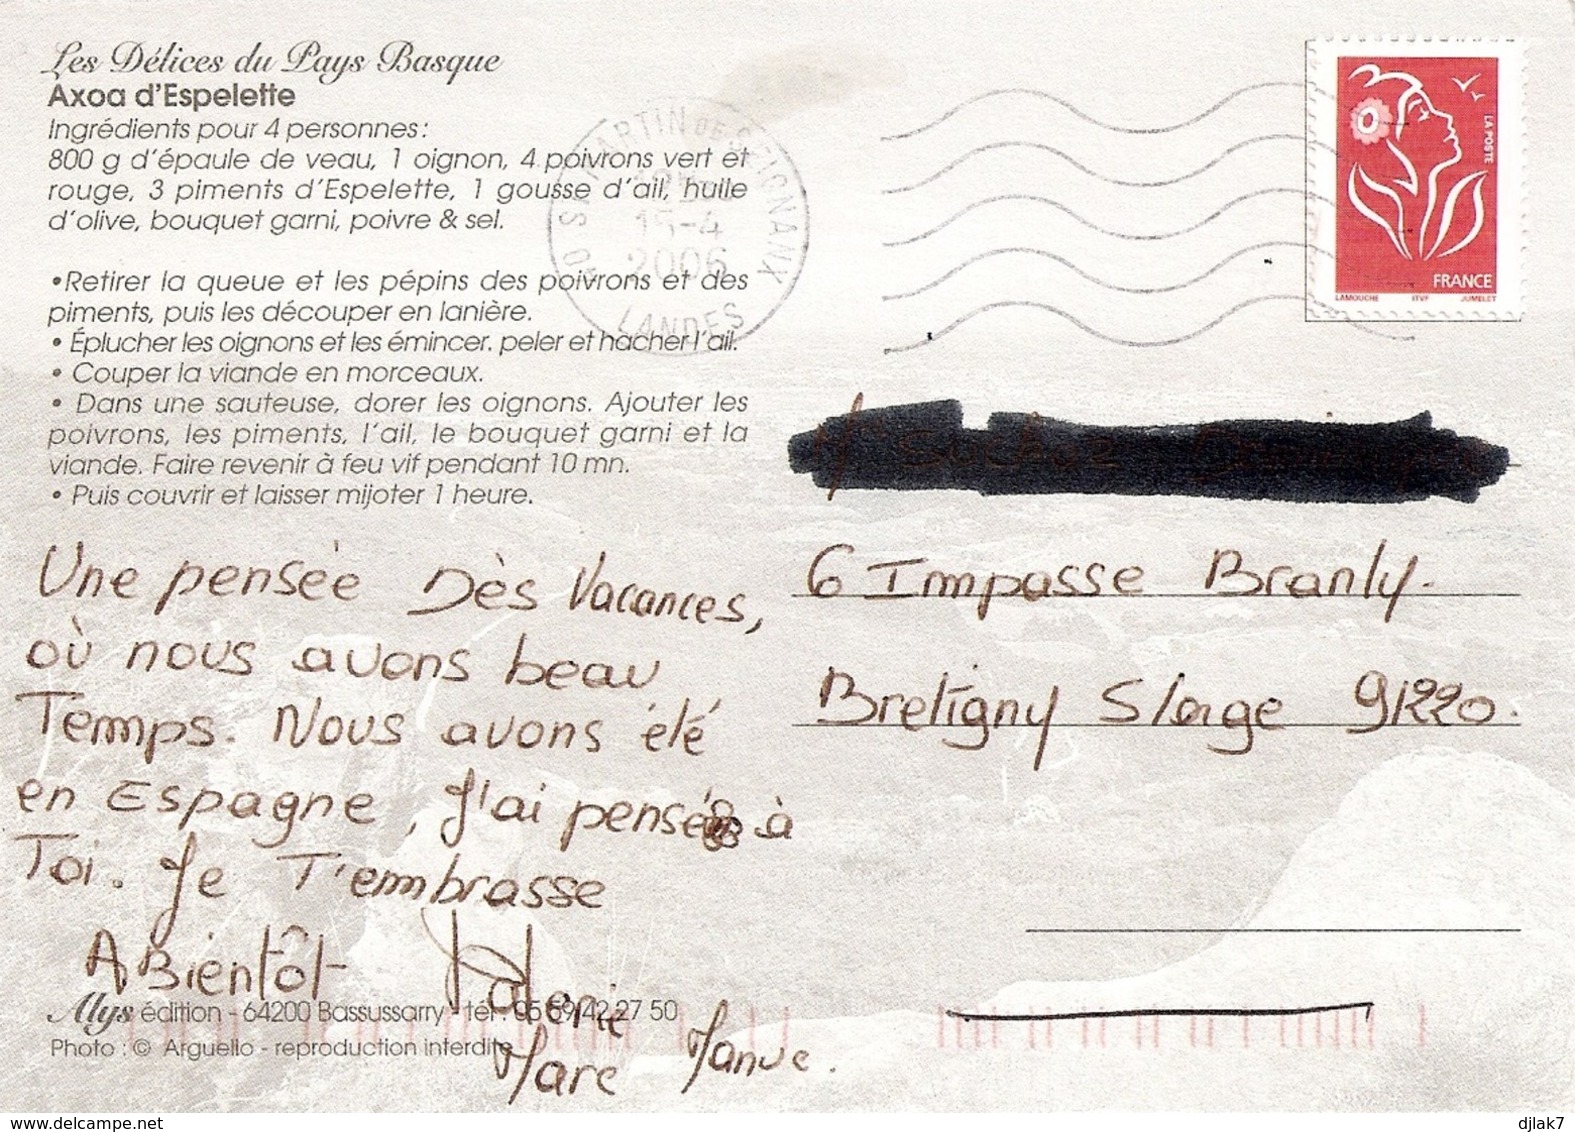 Les Délices du Pays Basque
Axoa d'Espelette
Ingrédients pour 4 personnes :
800 g d'épaule de veau, 1 oignon, 4 poivrons vert et
rouge, 3 piments d'Espelette, 1 gousse d'ail, huile
d'olive, bouquet garni, poivre & sel.
•Retirer la queue et les pépins des poivrons et des
piments, puis les découper en lanière.
• Éplucher les oignons et les émincer. peler et hacher l'ail.
• Couper la viande en morceaux.
• Dans une sauteuse, dorer les oignons. Ajouter les
poivrons, les piments, l'ail, le bouquet garni et la
viande. Faire revenir à feu vif pendant 10 mn.
• Puis couvrir et laisser mijoter 1 heure.
40 ST MARTIN DE SEIGNANX
15-4
2006
LANDES
LA POSTE
FRANCE
LAMOUCHE ITVF JUMELET
Une pensée Dès Vacances,
où nous avons beau
Temps. Nous avons été
en Espagne, J'ai pensée à
Toi. Je T'embrasse
A Bientôt Valerie
Marc Manue.
6 Impasse Branly.
Bretigny S/orge 91220.
Alys édition - 64200 Bassussarry - tél : 05 59 42 27 50
Photo : © Arguello - reproduction interdite
www.delcampe.net
djlak7